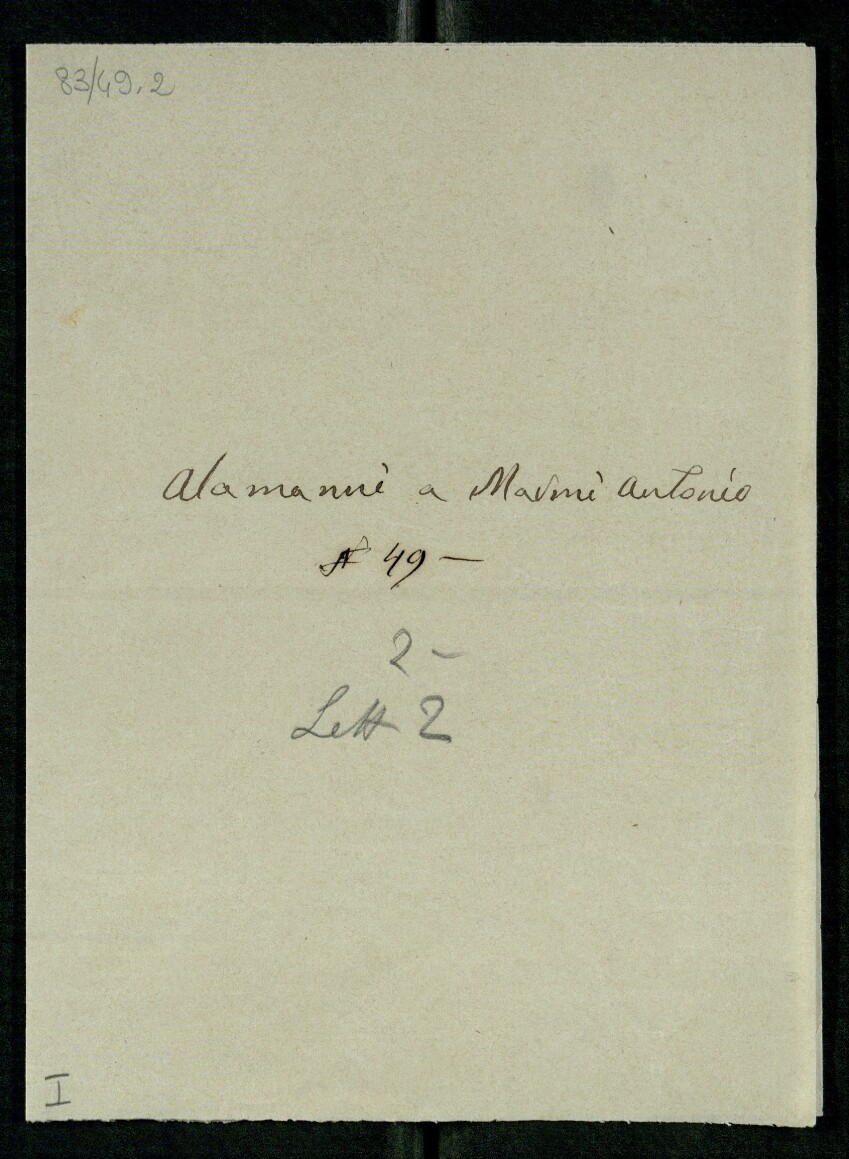 83/49.2
Alamanni a Marmi Antonio
N 49 —
2 –
Lett 2
I